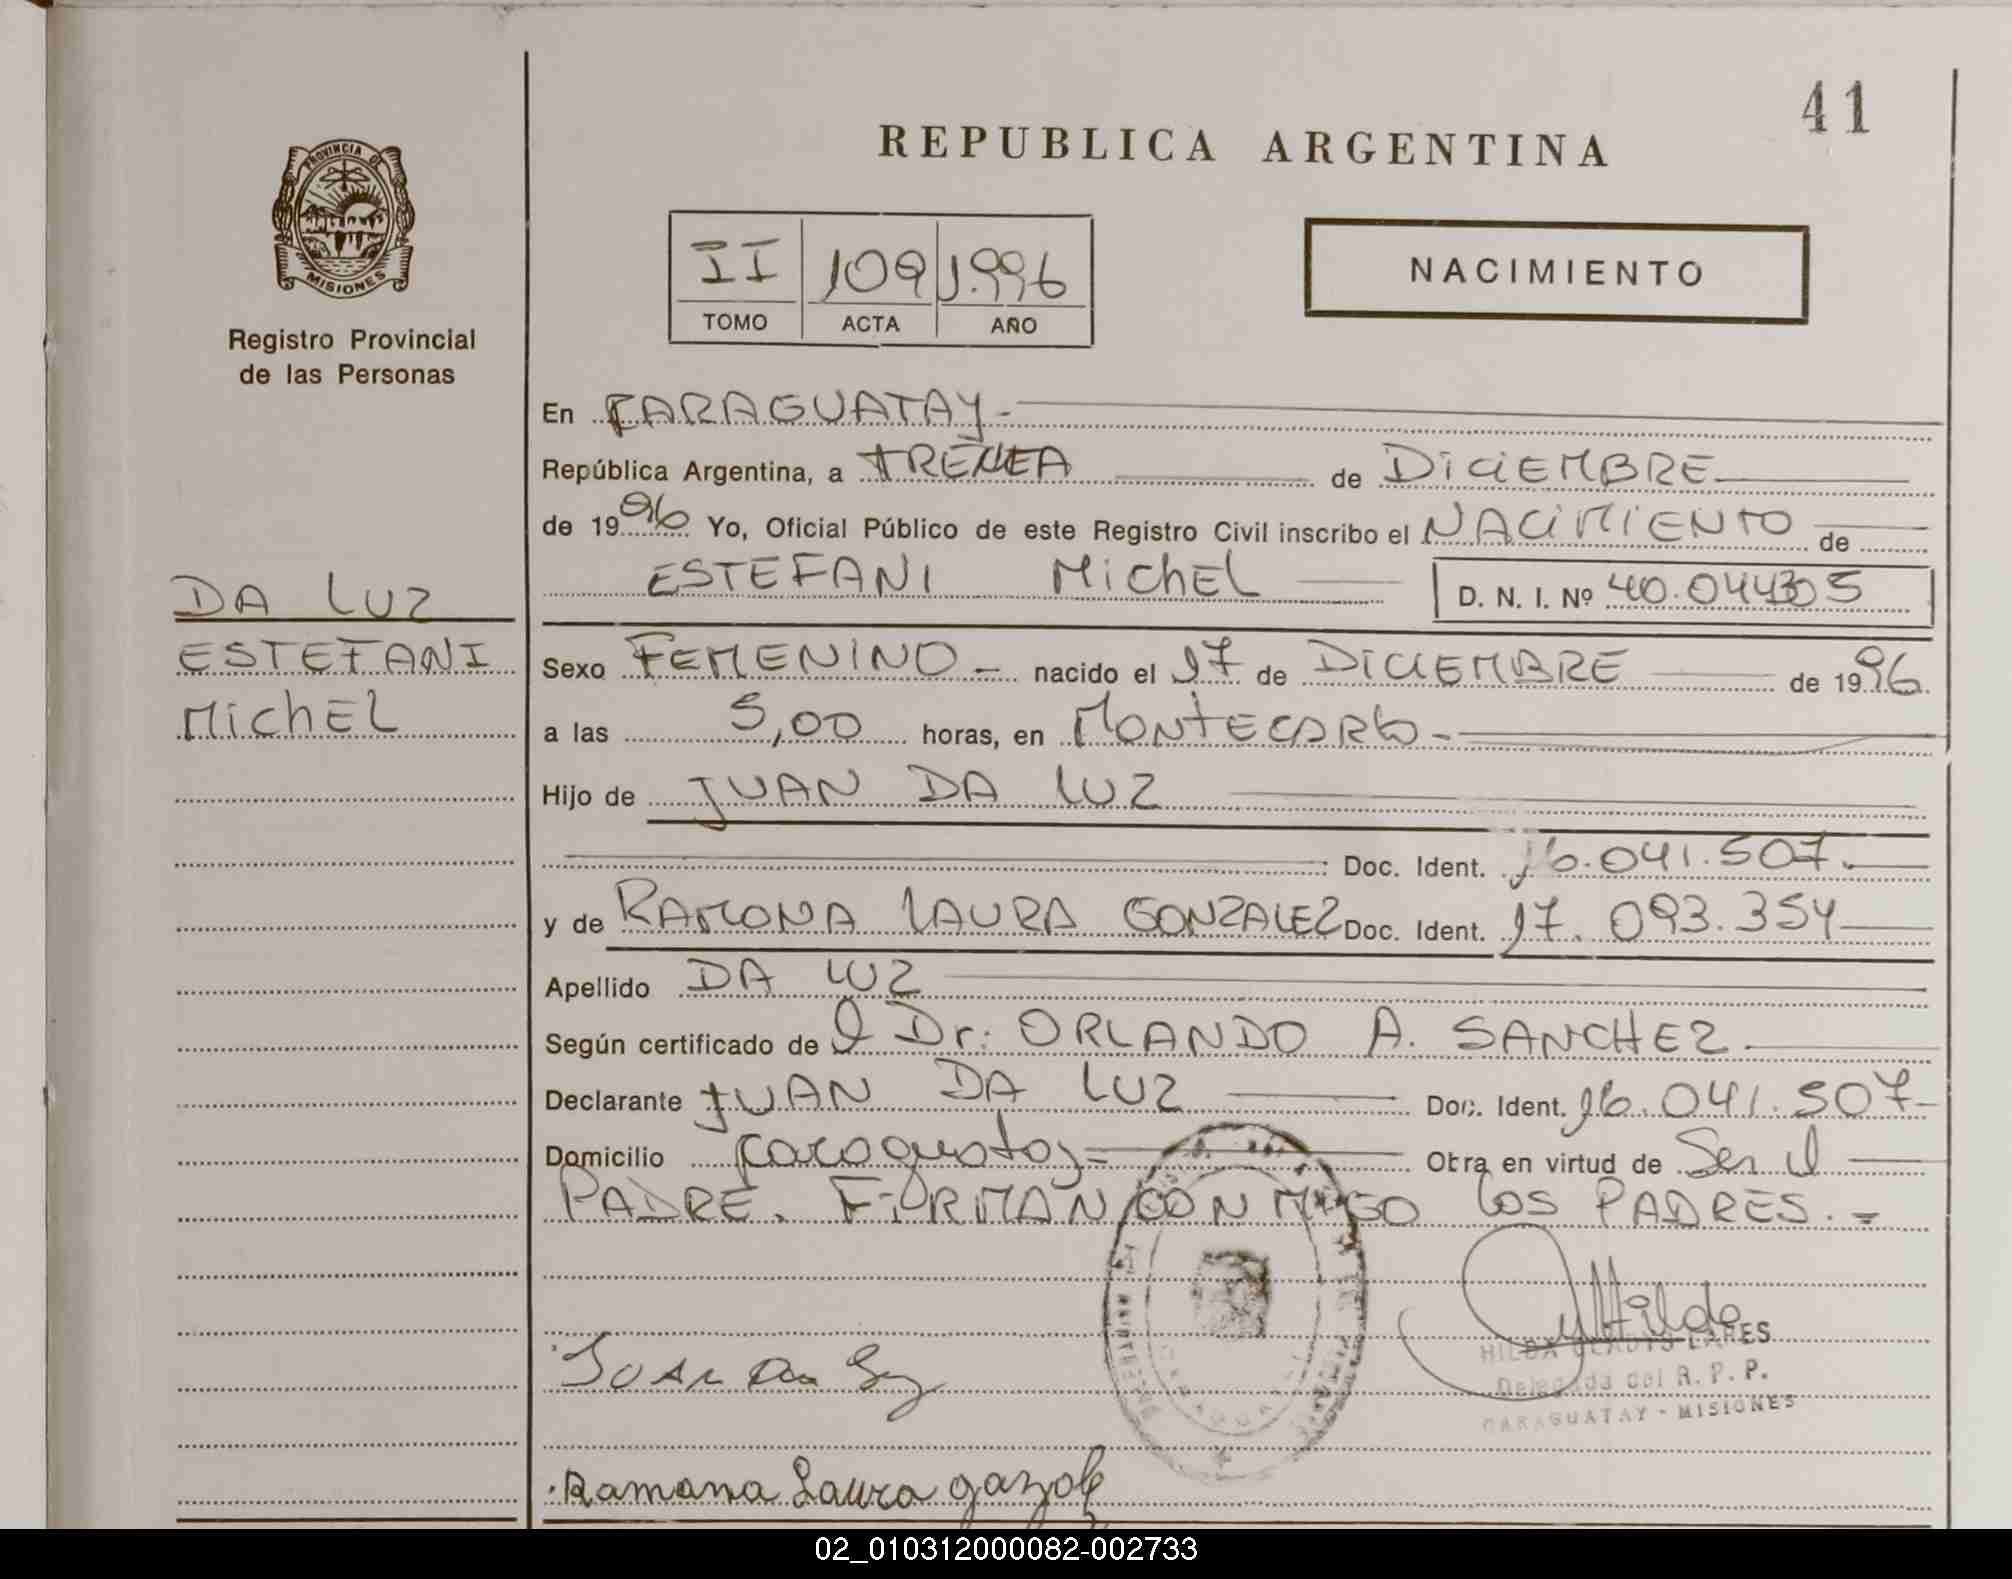 41
REPUBLICA ARGENTINA
PROVINCIA DE
MISIONES
Registro Provincial
de las Personas
II 109 1.996
TOMO ACTA AÑO
NACIMIENTO
En CARAGUATAY.-
República Argentina, a TREINTA de DiCiEMBRE
de 1996 Yo, Oficial Público de este Registro Civil inscribo el NACiMiENTO de
ESTEFANI MichEL D. N. I. Nº 40.044305
DA LUZ
ESTEFANI
MichEL
Sexo FEMENINO - nacido el 17 de DICIEMBRE de 1996.
a las 5,00 horas, en MONTECARLO -
Hijo de JUAN DA LUZ
Doc. Ident. 16.041.507.
y de RAMONA LAURA GONZALEZ Doc. Ident. 17.093.354
Apellido DA LUZ
Según certificado de l Dr: ORLANDO A. SANCHEZ.
Declarante JUAN DA LUZ Doc. Ident. 16.041.507-
Domicilio Caraguatay= Otra en virtud de Ser el
PADRE. FIRMAN CONMIGO LOS PADRES.=
Hilda
HILDA GLADYS LARES
Delegada del R. P. P.
CARAGUATAY - MISIONES
JUAN Da Luz
Ramona Laura
02_010312000082-002733